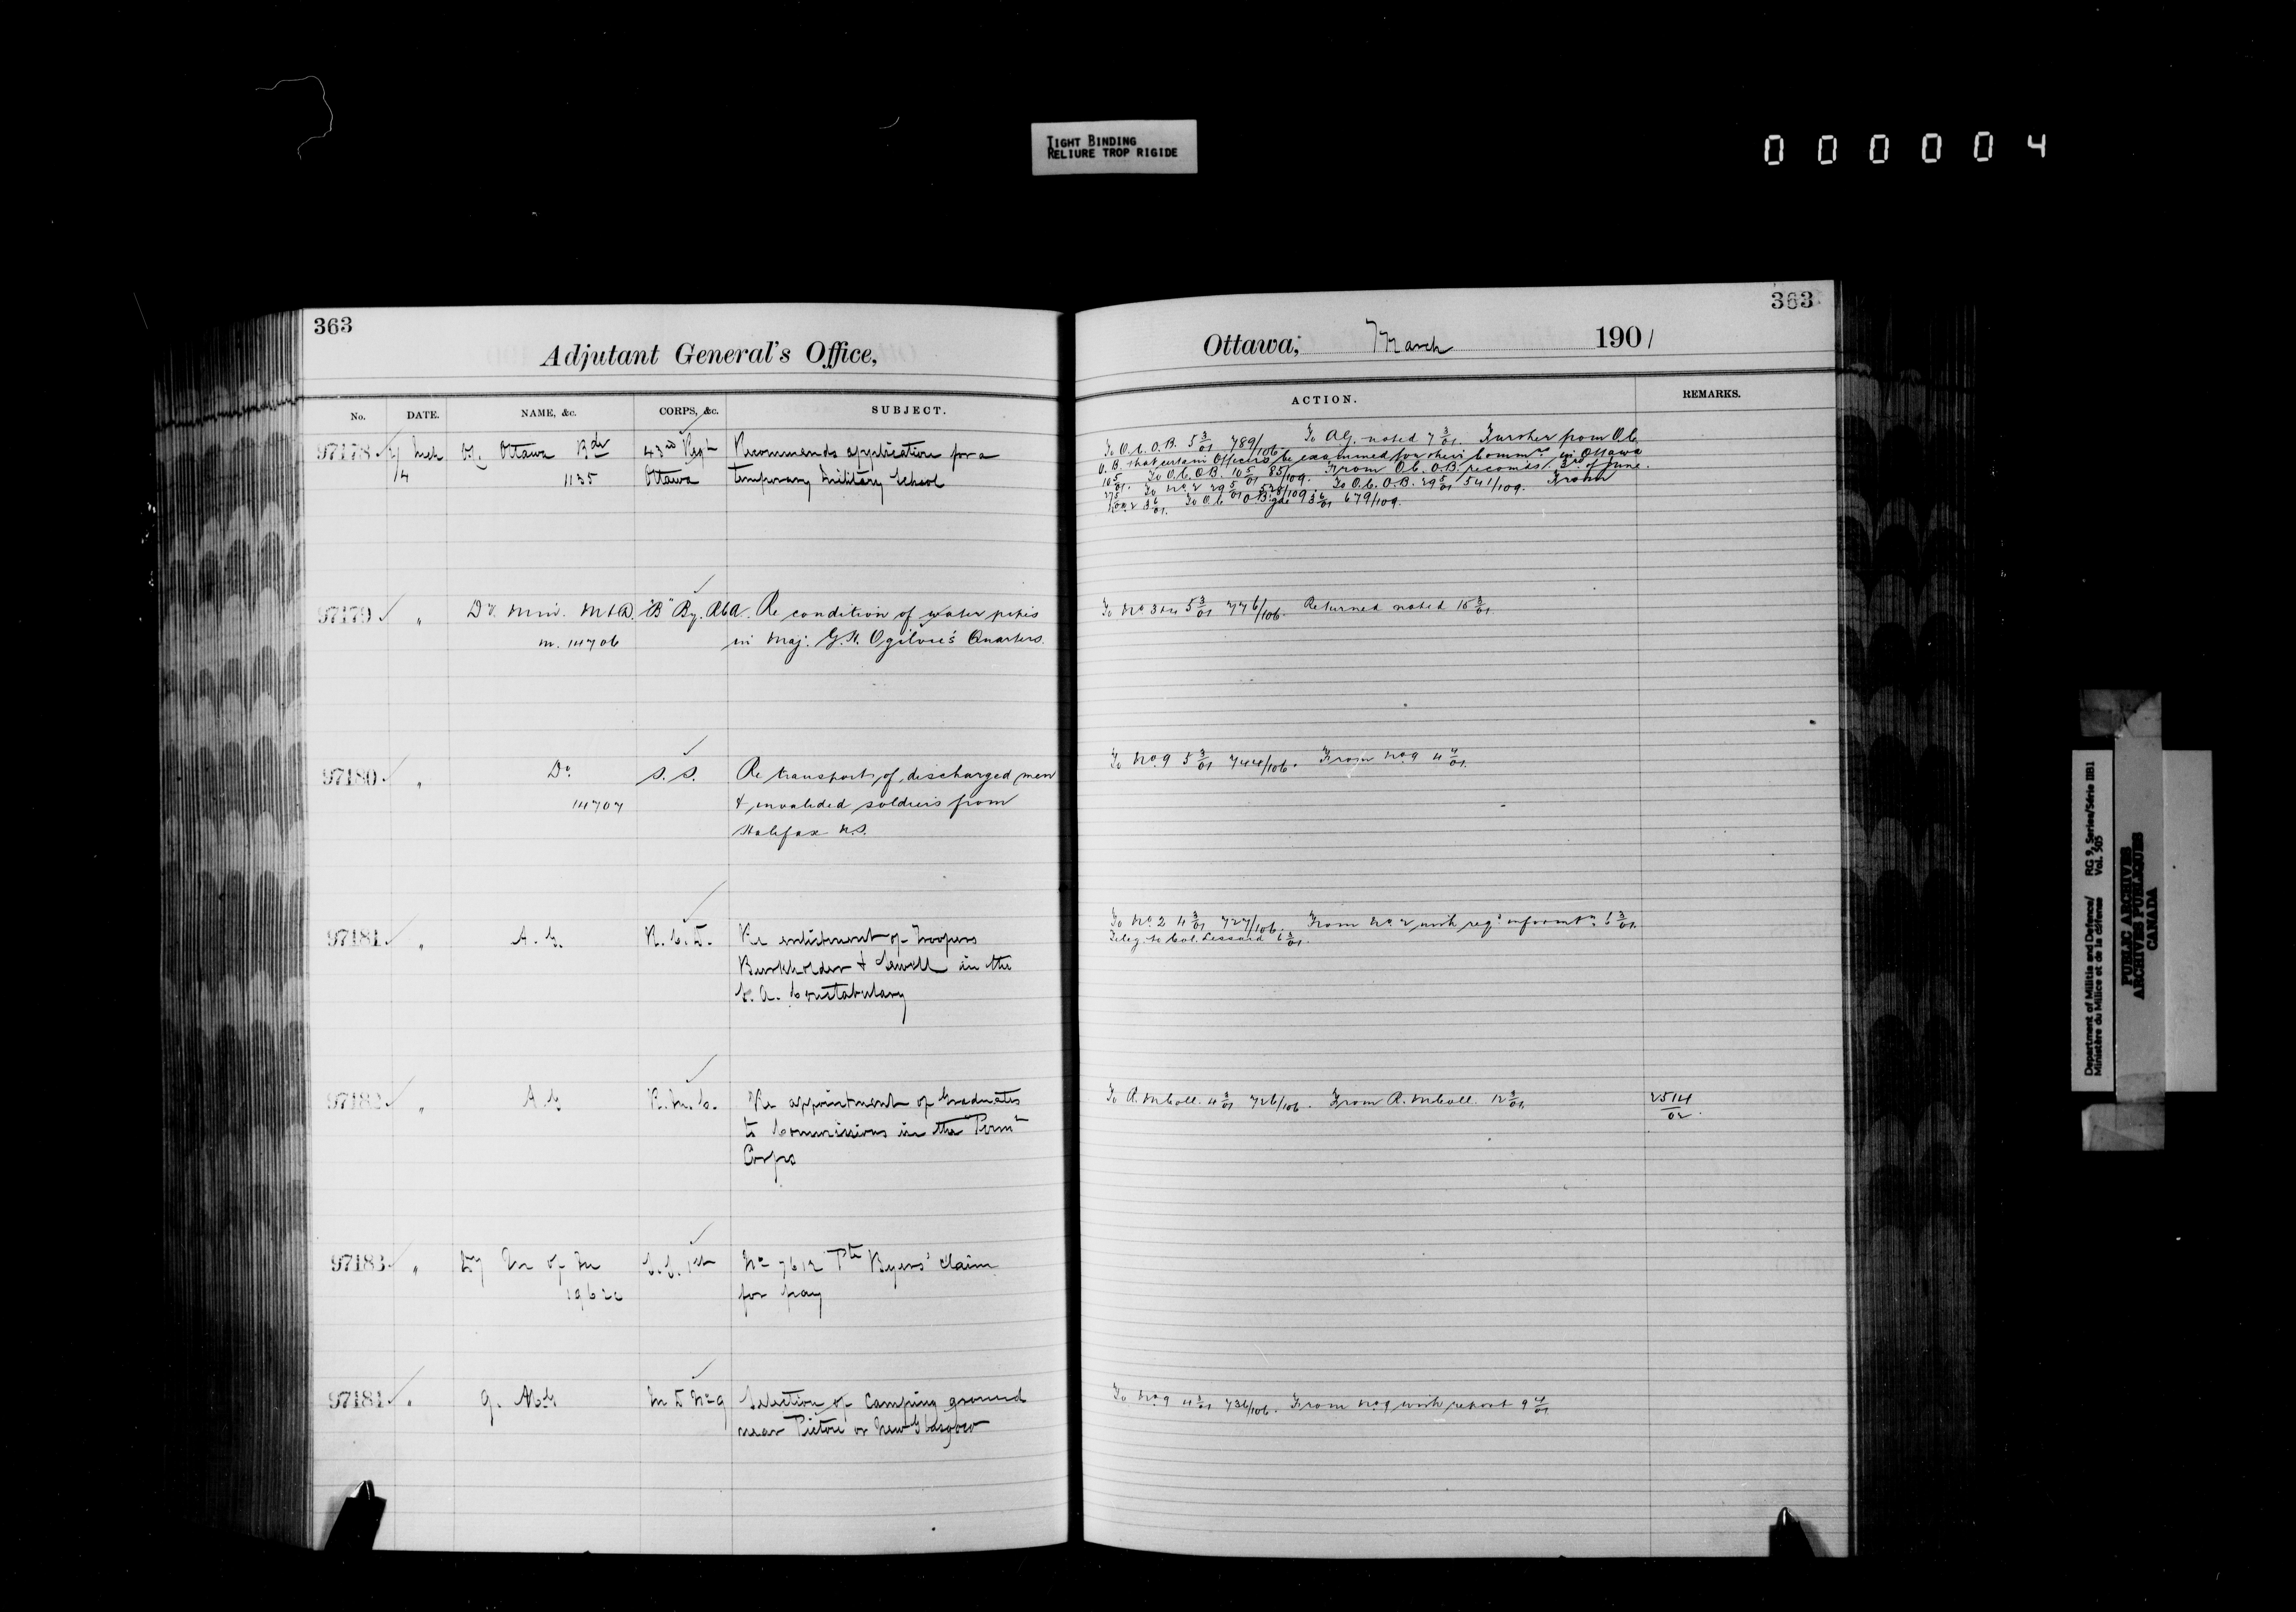 TIGHT BINDING
RELIURE TROP RIGIDE
000004
363
Adjutant General's Office,
No. DATE. NAME, &c. CORPS, &c. SUBJECT.
97178 Mch Ottawa Bde 43rd Regt Recommends application for a
4 1135 Ottawa temporary Military School
97179 " Dy. Min. M&D. "B" By. RCA. Re condition of water pipes
m. 14706 in Maj: G.H. Ogilvie's Quarters.
97180 " Do. S.S. Re transport of discharged men
14707 & invalided soldiers from
Halifax N.S.
97181 " A.G. R.C.D. Re enlistment of Troopers
Burkholder & Sewell in the
S.A. Constabulary
97182 " A.G R.M.C. Re appointment of Graduates
to Commissions in the Permt
Corps
97183 " of No 7612 Pte Byers' claim
for pay
97184 " M D No 9 Selection of Camping ground
near Pictou or New Glasgow
363
Ottawa, March 1901
ACTION. REMARKS.
To O.C. O.B. 5 3/01 789/106. To AG. noted 7 3/01. Further from O.C.
O.B. that certain Officers be examined for their Commns in Ottawa
10 5/01. To O.C. O.B. 10 5/01 85/109. From O.C. O.B. recomds. 3rd of June.
27 5/01 To No. 2 29 5/01 528/109. To O.C. O.B. 29 5/01 541/109. From
No. 2 3 6/01. To O.C. O.B. 3 6/01 679/109.
To No 3&4 5 3/01 776/106. Returned noted 15 3/01.
To No. 9 5 3/01 744/106. From No. 9 4 4/01.
To No. 2 4 3/01 727/106. From No. 2 with reqd informtn. 6 3/01.
Teleg. to Col. Lessard 6 3/01.
To R.M Coll. 4 3/01 726/106. From R.M Coll. 12 3/01. 2514/02.
To No. 9 4 3/01 736/106. From No. 9 with report 9 4/01
Department of Militia and Defence/ RG 9, Series/Série IIB1
Ministère du Milice et de la défense Vol. 505
PUBLIC ARCHIVES
ARCHIVES PUBLIQUES
CANADA